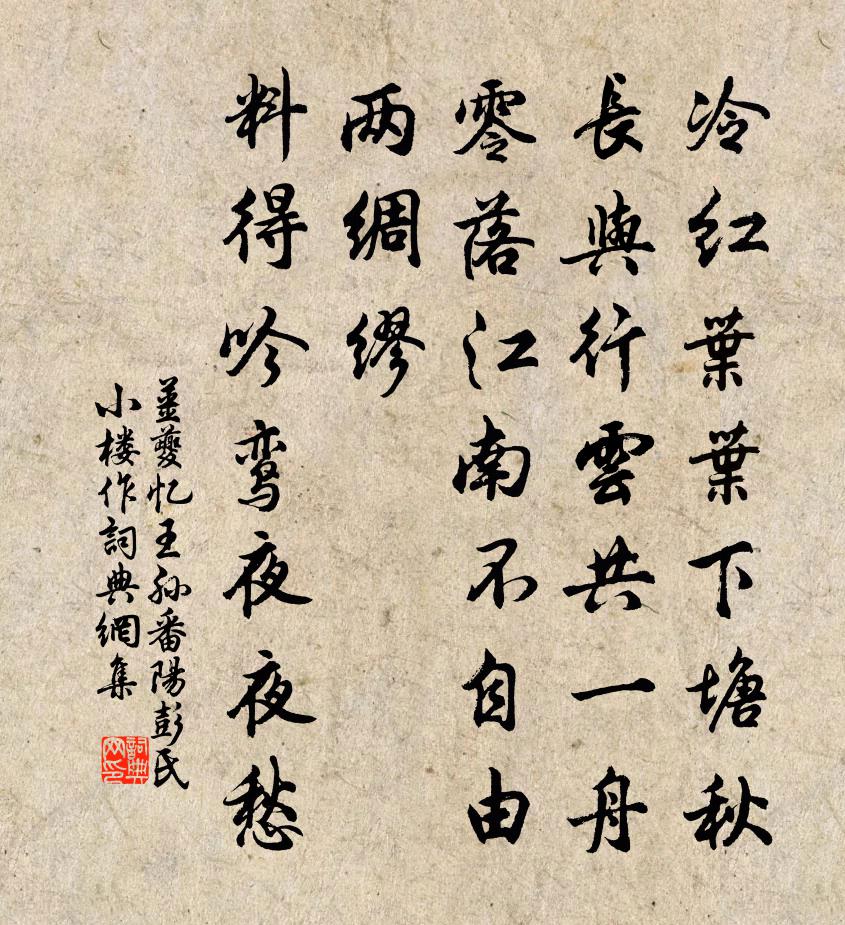 冷红葉葉下塘秋
長與行雲共一舟
零落江南不自由
两綢繆
料得吟鸾夜夜愁
姜夔忆王孙番陽彭氏
小楼作詞典網集
詞典網印